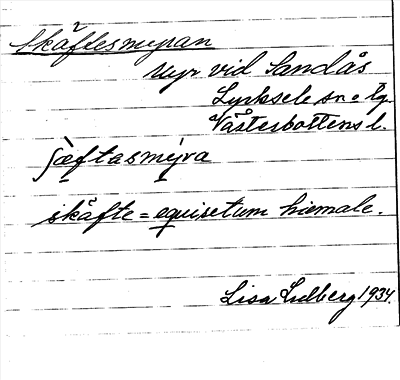 Skäftesmyran
myr vid Sandås
Lycksele sn o tg
Västerbottens l.
ʃæftasmýra
skäfte = equisetum hiemale.
Lisa Lidberg 1934.